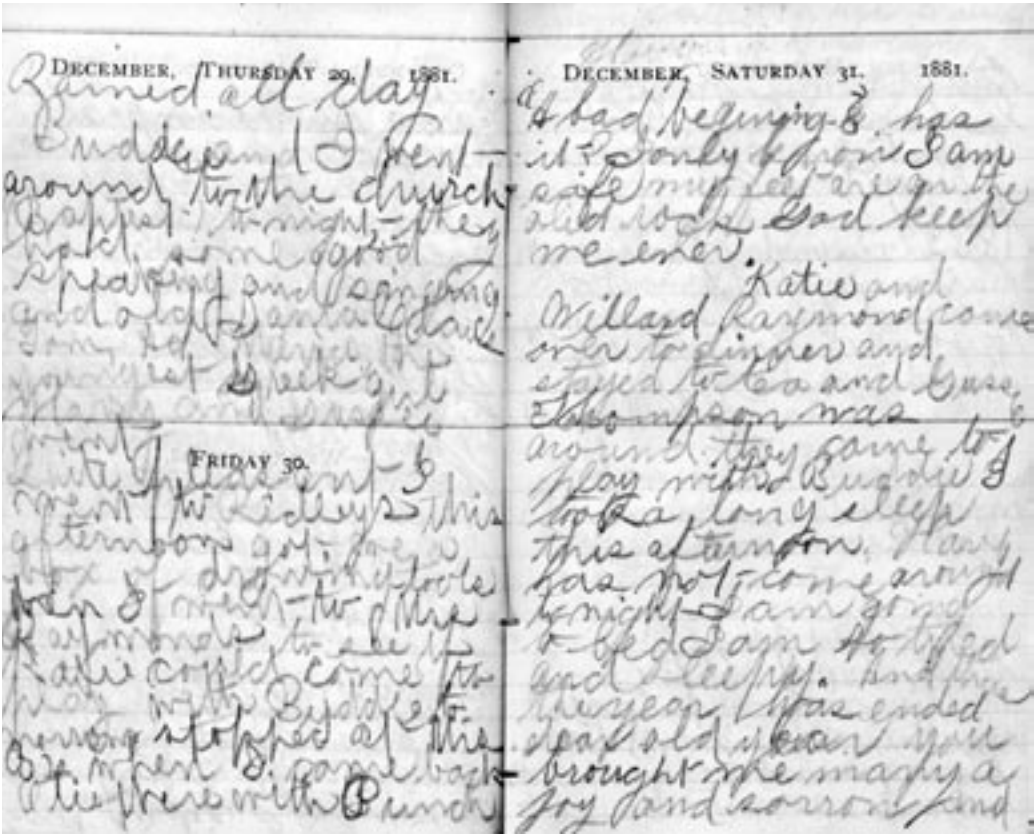 DECEMBER, THURSDAY 29, 1881.
Rained all day
Buddie and I went
around to the church
to night, they
had some good
speaking and singing
and old Santa Claus
the
youngest
went
FRIDAY 30.
pleasant I
went to Ridleys this
afternoon got me a
box of drawing tools
then I went to the
Raymonds to see if
Katie could come to
play with Buddie to
morrow stopped at the
when I came back
there with Punch
DECEMBER, SATURDAY 31. 1881.
A bad begining has
it? I only know I am
safe my feet are on the
God keep
me ever.
Katie and
Willard Raymond came
over to dinner and
stayed to tea and Guss
Thompson was
around they came to
play with Buddie I
took a long sleep
this afternoon. Harry
has not come around
to night I am going
to bed I am so tired
and sleepy. And
the year has ended
dear old year you
brought me many a
joy and sorrow and